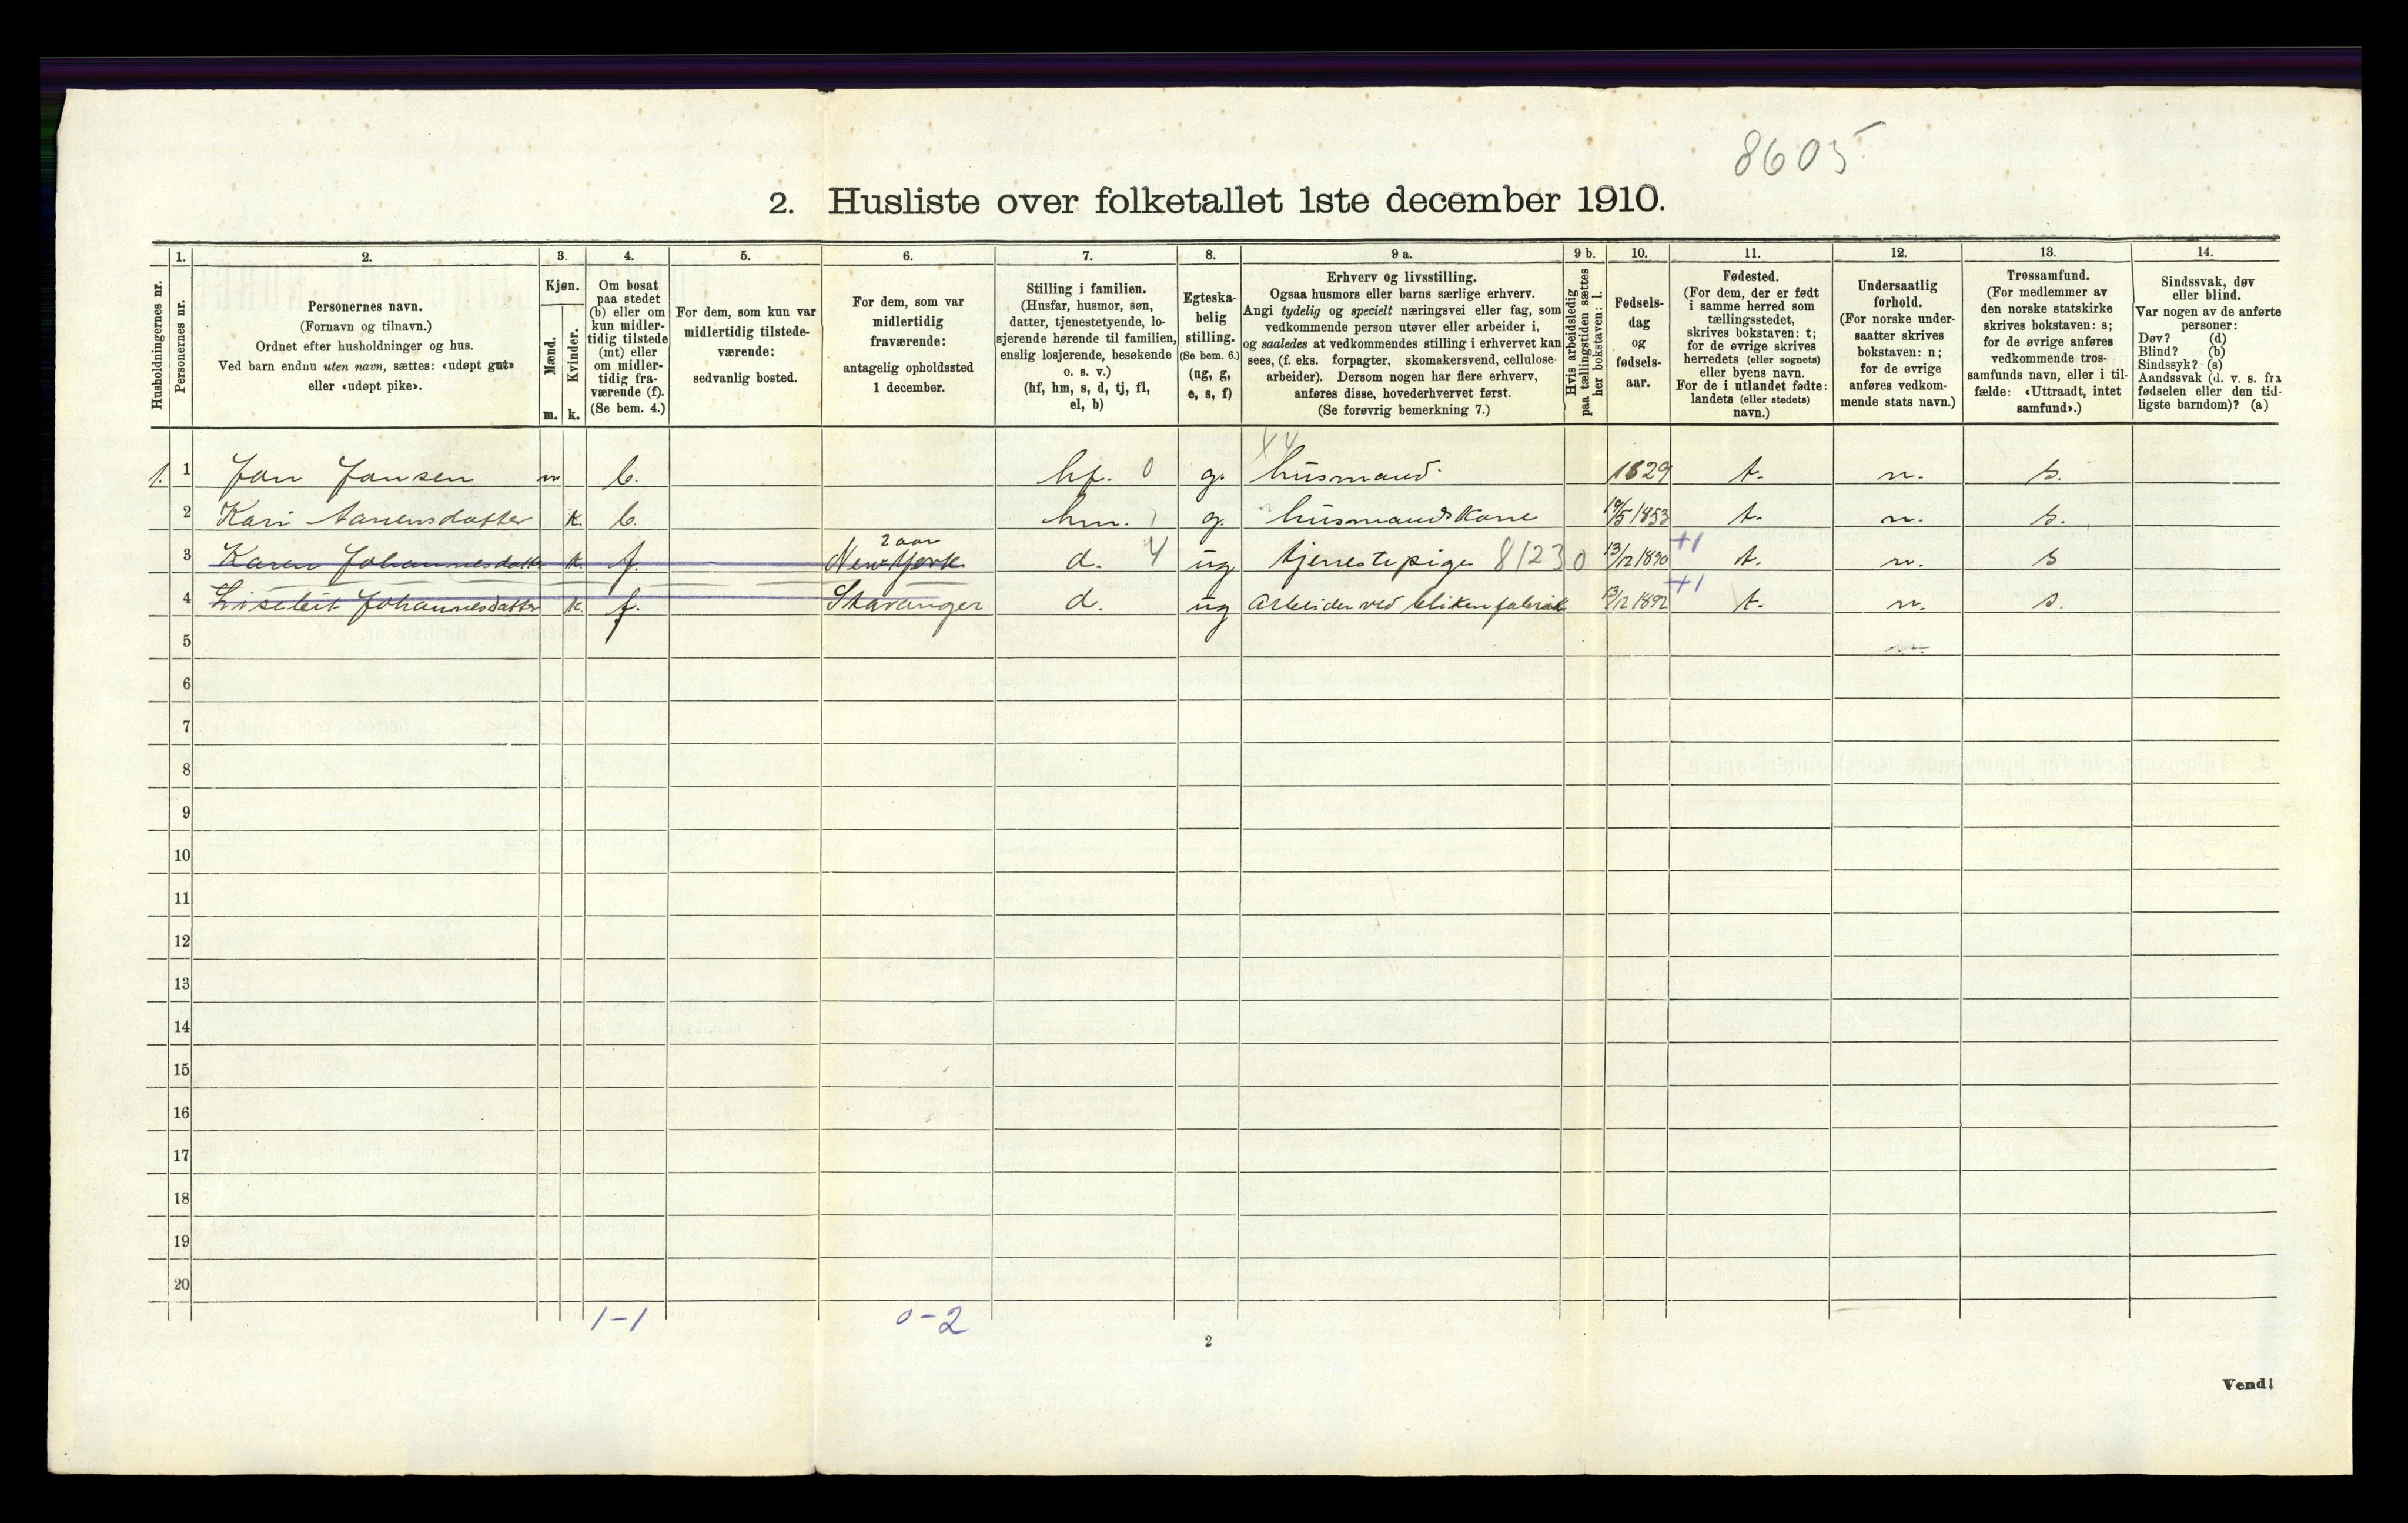 8605
2. Husliste over folketallet 1ste december 1910.
Husholdningernes nr.
1.
Personernes nr.
2.
Personernes navn.
(Fornavn og tilnavn.)
Ordnet efter husholdninger og hus.
Ved barn endnu uten navn, sættes: «udøpt gut»
eller «udøpt pike».
3.
Kjøn.
Mænd.
Kvinder.
m. k.
4.
Om bosat
paa stedet
(b) eller om
kun midler-
tidig tilstede
(mt) eller
om midler-
tidig fra-
værende (f).
(Se bem. 4.)
5.
For dem, som kun var
midlertidig tilstede-
værende:
sedvanlig bosted.
6.
For dem, som var
midlertidig
fraværende:
antagelig opholdssted
1 december.
7.
Stilling i familien.
(Husfar, husmor, søn,
datter, tjenestetyende, lo-
sjerende hørende til familien,
enslig losjerende, besøkende
o. s. v.)
(hf, hm, s, d, tj, fl,
el, b)
8.
Egteska-
belig
stilling.
(Se bem. 6.)
(ug, g,
e, s, f)
9 a.
Erhverv og livsstilling.
Ogsaa husmors eller barns særlige erhverv.
Angi tydelig og specielt næringsvei eller fag, som
vedkommende person utøver eller arbeider i,
og saaledes at vedkommendes stilling i erhvervet kan
sees, (f. eks. forpagter, skomakersvend, cellulose-
arbeider). Dersom nogen har flere erhverv,
anføres disse, hovederhvervet først.
(Se forøvrig bemerkning 7.)
9 b.
Hvis arbeidsledig
paa tællingstiden sættes
her bokstaven: l.
10.
Fødsels-
dag
og
fødsels-
aar.
11.
Fødested.
(For dem, der er født
i samme herred som
tællingsstedet,
skrives bokstaven: t;
for de øvrige skrives
herredets (eller sognets)
eller byens navn.
For de i utlandet fødte:
landets (eller stedets)
navn.)
12.
Undersaatlig
forhold.
(For norske under-
saatter skrives
bokstaven: n;
for de øvrige
anføres vedkom-
mende stats navn.)
13.
Trossamfund.
(For medlemmer av
den norske statskirke
skrives bokstaven: s;
for de øvrige anføres
vedkommende tros-
samfunds navn, eller i til-
fælde: «Uttraadt, intet
samfund».)
14.
Sindssvak, døv
eller blind.
Var nogen av de anførte
personer:
Døv? (d)
Blind? (b)
Sindssyk? (s)
Aandssvak (d. v. s. fra
fødselen eller den tid-
ligste barndom)? (a)
1. 1 Jon Jonsen m b. hf. 0 g. husmand. 1829 t. n. s.
2 Kari Aanensdatter k. b. hm. g. husmandskone 10/5 1853 t. n. s.
2 aar
3 Karen Johannesdatter k. f. New York d. 4 ug tjenestepige 8123 0 13/12 1890 +1 t. n. s
4 Liselit Johannesdatter k. f. Stavanger d. ug arbeider ved blikenfabrik 13/12 1892 +1 t. n. s.
5
6
7
8
9
10
11
12
13
14
15
16
17
18
19
20
1-1 0-2
2
Vend!